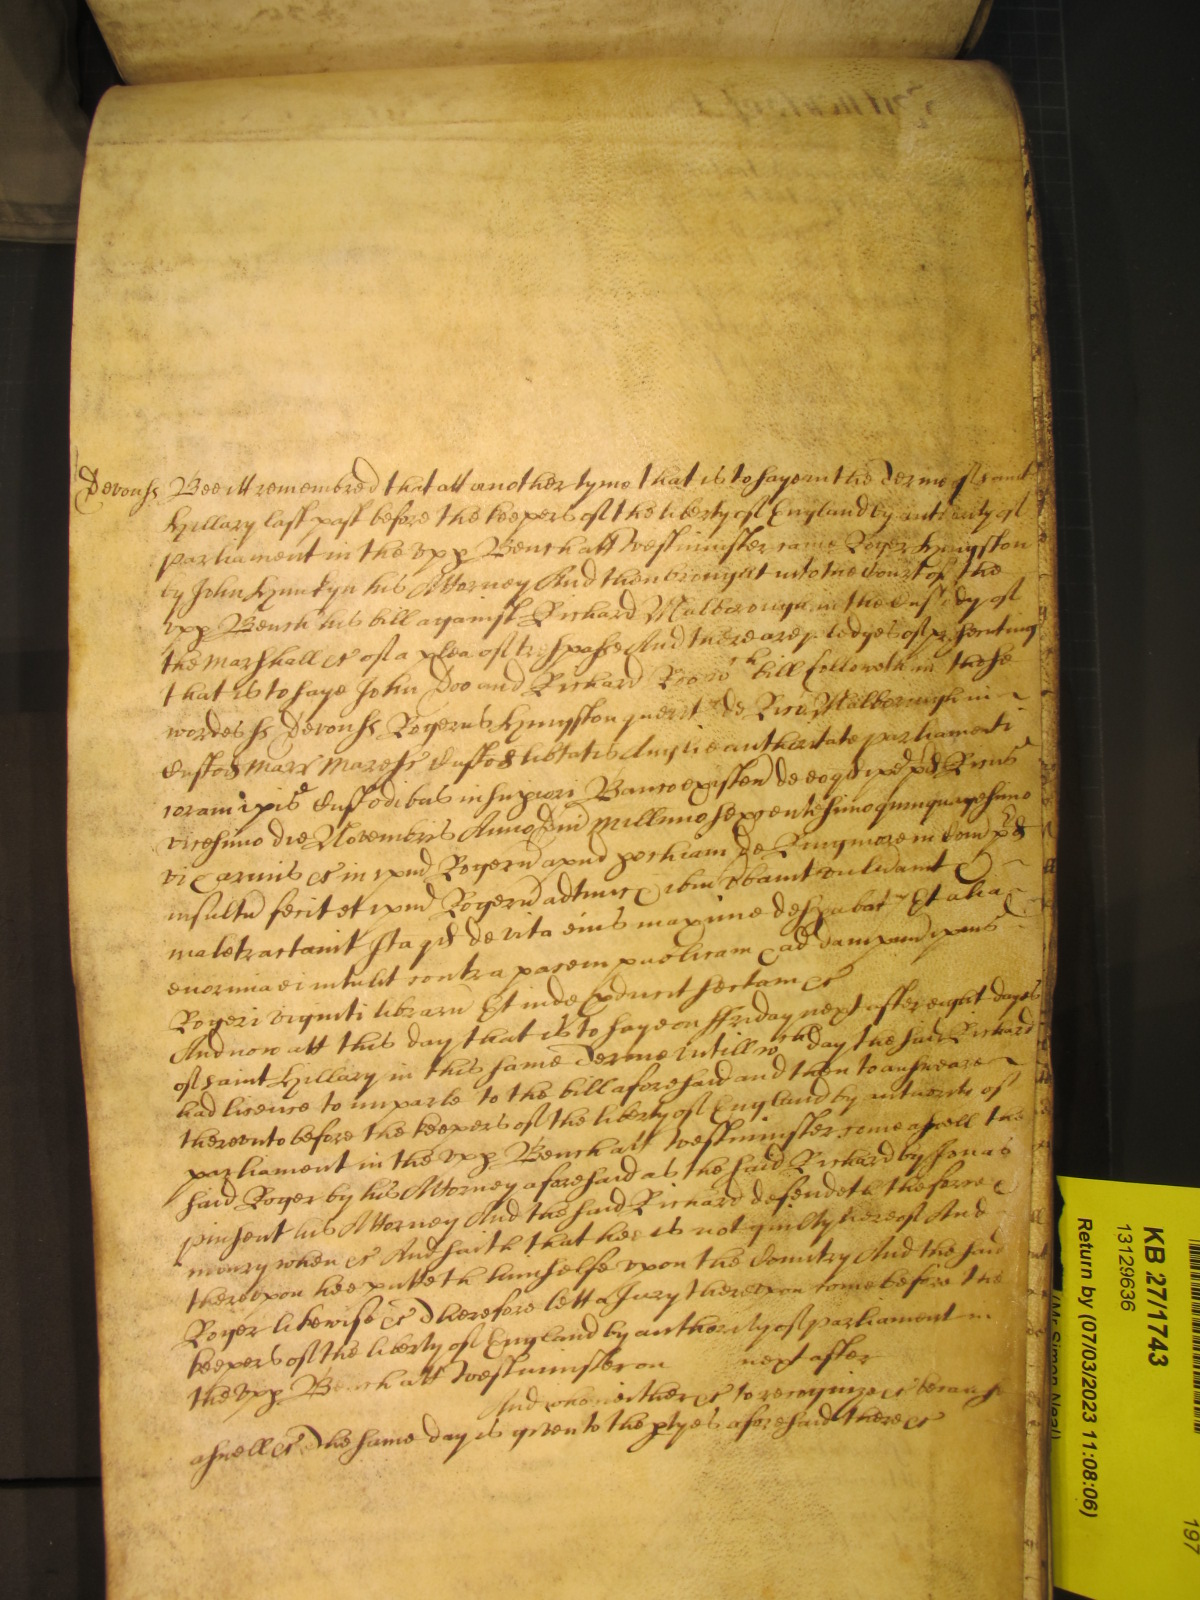 Devonss Bee itt remembred that att another tyme that is to saye in the Terme of saint
Hillary last past before the keepers of the liberty of England by authority of
parliament in the vpp Bench att Westminster came Roger Kyngston
by John Hunkyn his Attorney And then brought into the Court of the
vpp Bench his bill against Richard Malborough in the Custody of
the Marshall &c of a plea of trespasse And there are pledges of prosecuting
that is to saye John Doo and Richard Roo wch bill followeth in these
wordes ss Devonss Rogerus Kyngston querit de Rico Malborough in
Custod Marr Maress Custod libtatis Anglie authoritate parliamenti
coram ipis Custodibus in supiori Banco existen de eo qd ipe pd Ricus
vicesimo die Novembris Anno Dni Millimo sexcentesimo quinquagesimo
vi & armis &c in ipm Rogerum apud pochiam de Kingmore in Com pd
insultu fecit et ipm Rogeru adtunc & ibm vbavit vulnavit &
maletractavit Ita qd de vita eius maxime desperabat Et alia
enormia ei intulit contra pacem publicam & ad dampnum ipius
Rogeri viginti librarum Et inde producit sectam &c
And now att this day that is to saye on Friday next after eight dayes
of saint Hillary in this same Terme vntill wch day the said Richard
had licence to imparle to the bill aforesaid and then to answeare
therevnto before the keepers of the liberty of England by authority of
parliament in the vpp Bench att Westminster come aswell the
said Roger by his Attorney aforesaid as the said Richard by Jonas
pinsent his Attorney And the said Richard defendeth the force &
iniury when &c And saith that hee is not guilty thereof And
therevpon hee putteth himselfe vpon the Country And the said
Roger likewise &c Therefore lett a Jury therevpon come before the
keepers of the liberty of England by authority of parliament in
the vpp Bench att Westminster on next after
And who neither &c to recognize &c because
aswell &c The same day is given to the ptyes aforesaid there &c
KB 27/1743
13129636
Return by (07/03/2023 11:08:06)
(Mr Simon Neal)
197